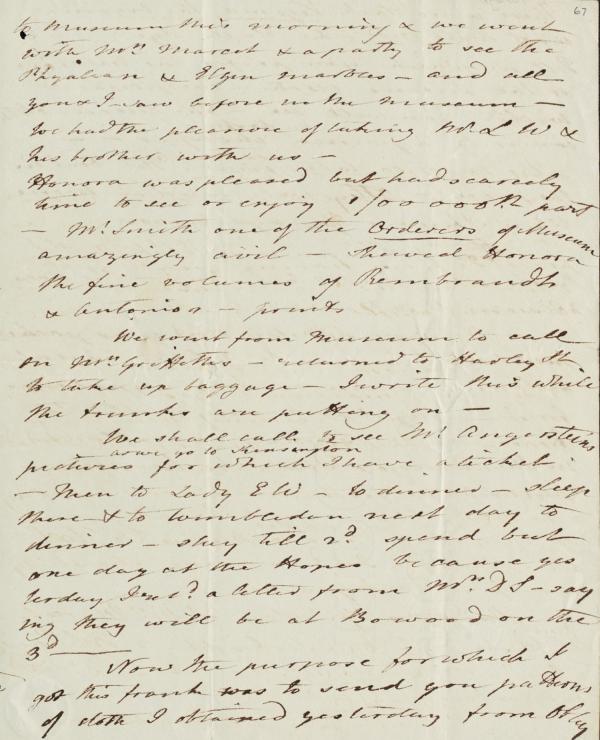 67
to Museum this morning & we went
with Mrs Marcet & a party to see the
Phigalian & Elgin marbles – and all
you & I saw before in the Museum –
We had the pleasure of taking Mr L W &
his brother with us –
Honora was pleased but had scarcely
time to see or enjoy 1/00 000th part
– Mr Smith one of the Orderers of Museum
amazingly civil – shewed Honora
the fine volumes of Rembrandts
& Antonios – prints
We went from Museum to call
on Mrs Griffiths – returned to Harley St
to take up baggage – I write this while
the trunks are putting on –
We shall call to see Mr Angersteins
as we go to Kensington
pictures for which I have a ticket
– Then to Lady E W – to dinner – sleep
there & to Wimbledon next day to
dinner – stay till 2d. spend but
one day at the Hopes because yes
terday I recd. a letter from Mrs D S – say
ing they will be at Bowood on the
3d —
Now the purpose for which I
got this frank was to send you patterns
of cloth I obtained yesterday from